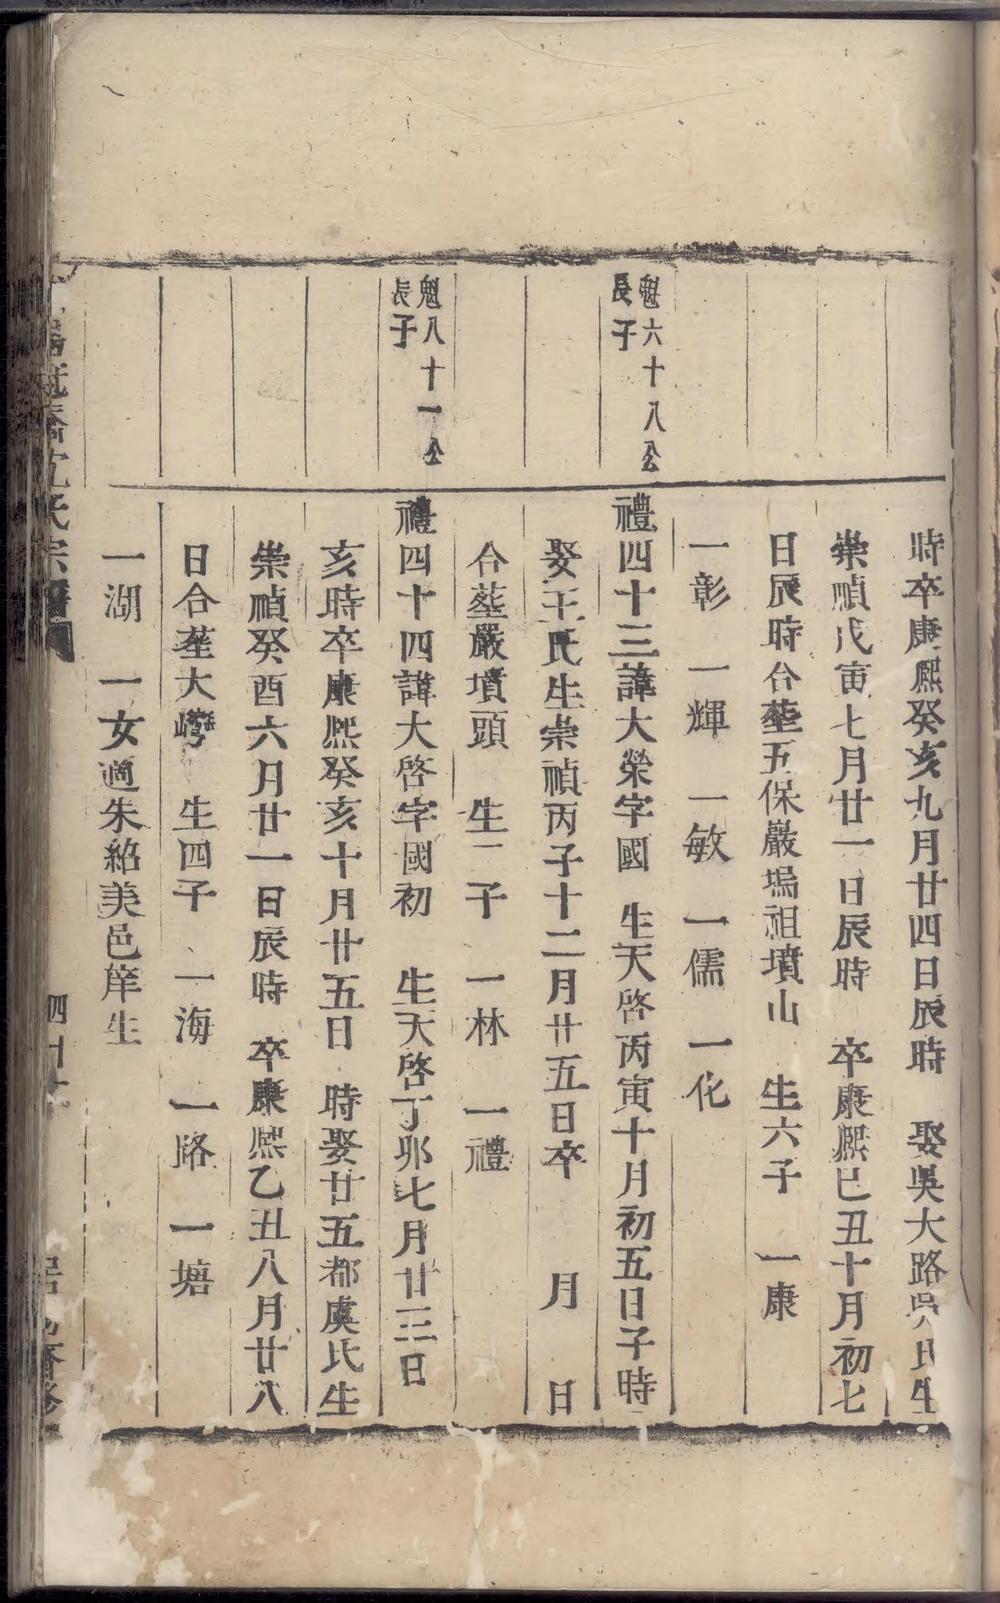 時卒康熙癸亥九月廿四日辰時　娶吳大路吳氏生
崇禎戊寅七月廿一日辰時　卒康熙己丑十月初七
日辰時合塟五保嚴塢祖墳山　生六子　一康
一彰　一輝　一敏　一儒　一化
魁六十八公
長子
禮四十三諱大榮字國　生天啓丙寅十月初五日子時
娶王氏生崇禎丙子十二月廿五日卒　月　日
合塟嚴墳頭　生二子　一林　一禮
魁八十一公
長子
禮四十四諱大啓字國初　生天啓丁卯七月廿三日
亥時卒康熙癸亥十月廿五日　時娶廿五都虞氏生
崇禎癸酉六月廿一日辰時　卒康熙乙丑八月廿八
日合塟大㟖　生四子　一海　一路　一塘
一湖　一女適朱紹美邑庠生
沈氏宗譜